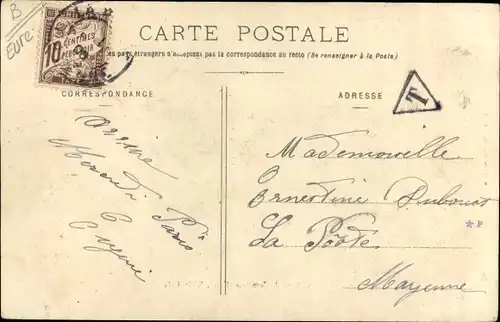 B
Eure
10
CENTIMES
À PERCEVOIR
CARTE POSTALE
les pays étrangers n'acceptent pas la correspondance au recto (Se renseigner à la Poste)
CORRESPONDANCE
ADRESSE
T
arrive
Mercredi Paris
Eugénie
Mademoiselle
Ernestine Dubourt
La Poôté
Mayenne